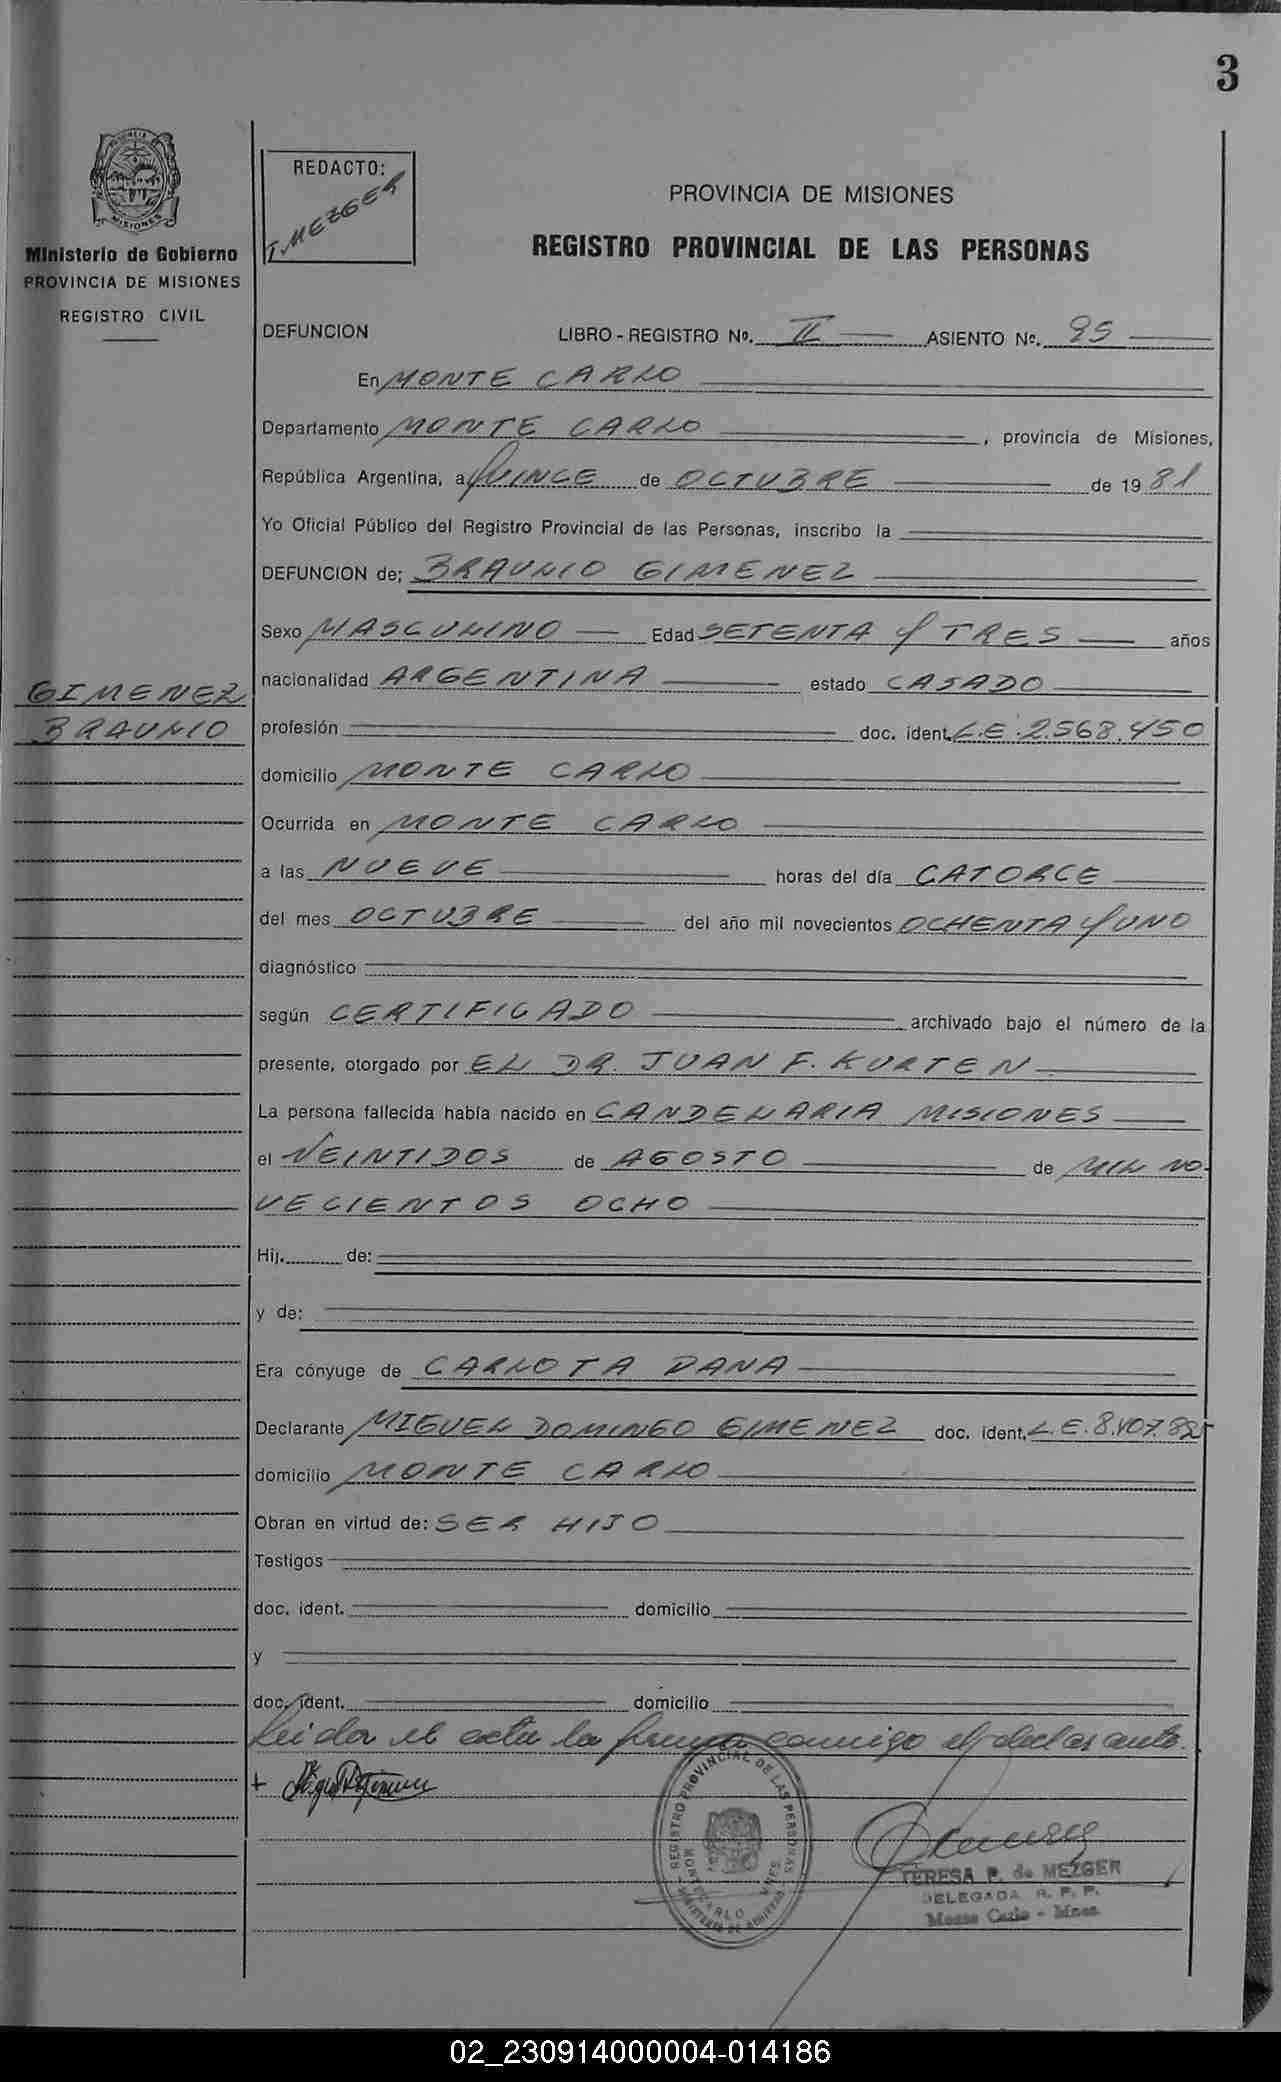 3
PROVINCIA
MISIONES
Ministerio de Gobierno
PROVINCIA DE MISIONES
REGISTRO CIVIL
REDACTO:
T. MEZGER
PROVINCIA DE MISIONES
REGISTRO PROVINCIAL DE LAS PERSONAS
DEFUNCION LIBRO - REGISTRO Nº. II ASIENTO Nº. 95
En MONTE CARLO
Departamento MONTE CARLO, provincia de Misiones,
República Argentina, a QUINCE de OCTUBRE de 19 81
Yo Oficial Público del Registro Provincial de las Personas, inscribo la
DEFUNCION de; BRAULIO GIMENEZ
Sexo MASCULINO Edad SETENTA Y TRES años
GIMENEZ
BRAULIO
nacionalidad ARGENTINA estado CASADO
profesión doc. ident. L.E. 2.568.450
domicilio MONTE CARLO
Ocurrida en MONTE CARLO
a las NUEVE horas del día CATORCE
del mes OCTUBRE del año mil novecientos OCHENTA Y UNO
diagnóstico
según CERTIFICADO archivado bajo el número de la
presente, otorgado por EL DR. JUAN F. KURTEN
La persona fallecida había nacido en CANDELARIA MISIONES
el VEINTIDOS de AGOSTO de MIL NO-
VECIENTOS OCHO
Hij. de:
y de:
Era cónyuge de CARLOTA DANA
Declarante MIGUEL DOMINGO GIMENEZ doc. ident. L.E.
domicilio MONTE CARLO
Obran en virtud de: SER HIJO
Testigos
doc. ident. domicilio
y
doc. ident. domicilio
Leida el acta la firma conmigo el declarante.
REGISTRO PROVINCIAL DE LAS PERSONAS
MONTECARLO MNES
MINISTERIO DE GOBIERNO
TERESA P. de MEZGER
DELEGADA R. P. P.
Monte Carlo - Mnes
02_230914000004-014186